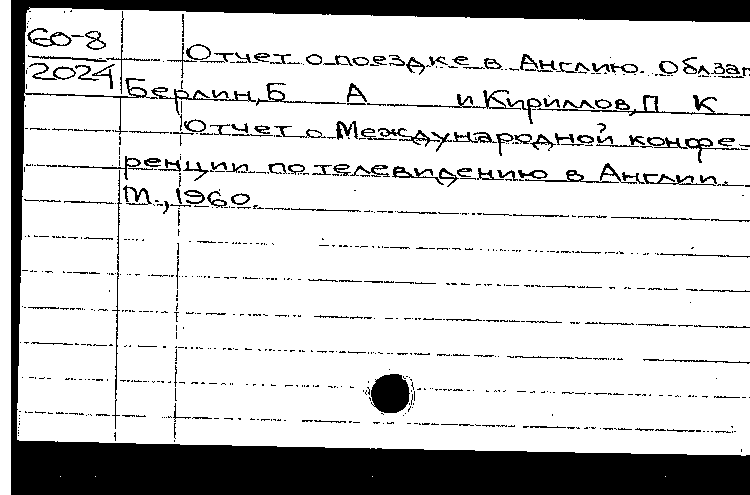 60-8
2024
Отчет о поездке в Англию. Обл.заг
Берлин, Б А и Кириллов, П К
Отчет о Международной конфе-
ренции по телевидению в Англии.
М., 1960.